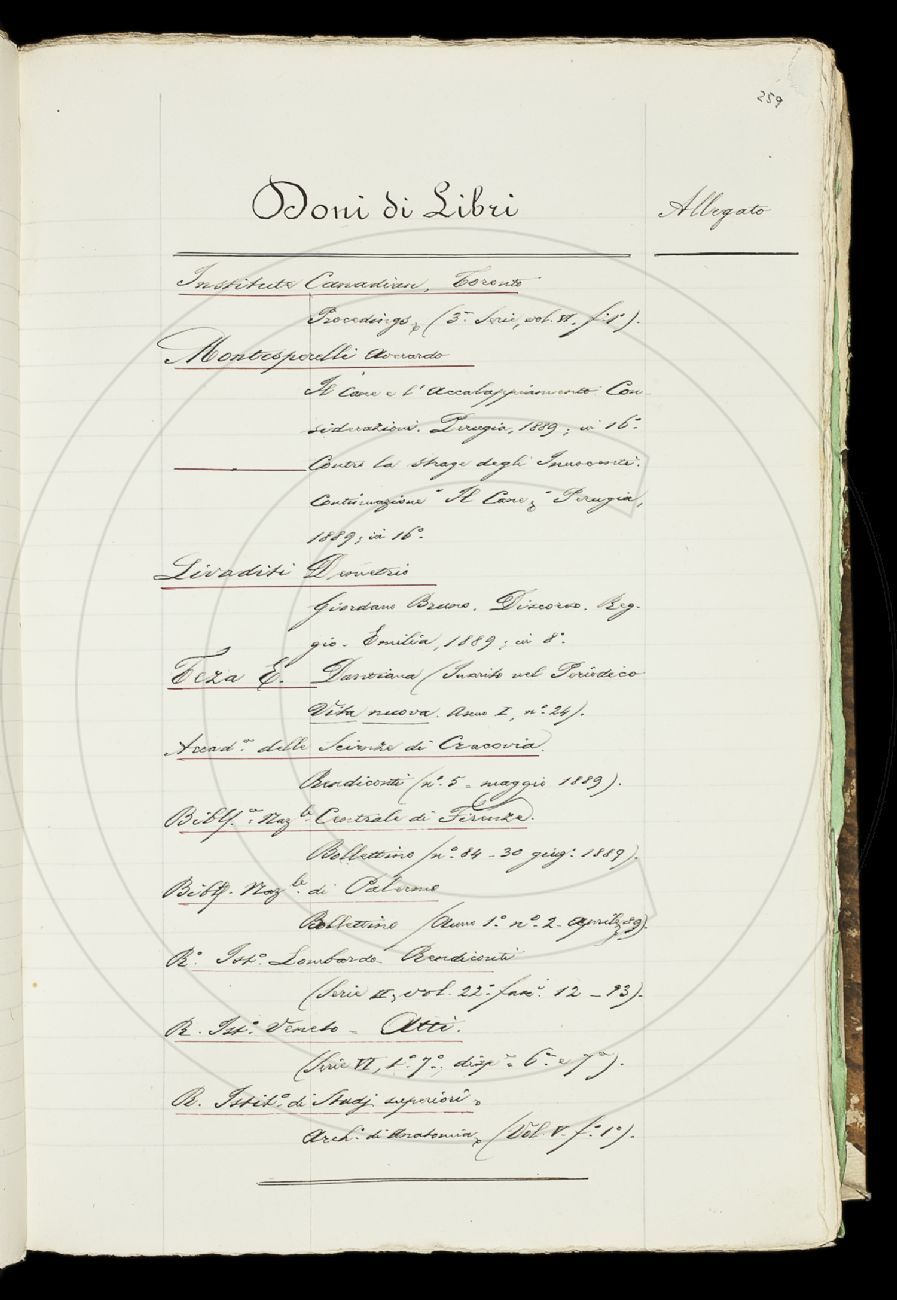 259
Doni di Libri
Allegato
Institute Canadian, Toronto
Procedings, (3ª Serie, vol. VI. f.º 1º).
Montesperelli Averardo
Il Cane e l'Accalappiamento Con-
siderazioni. Perugia, 1889; in 16º.
Contro la strage degli Innocenti.
Continuazione "Il Cane," Perugia,
1889; in 16º.
Livaditi Demetrio
Giordano Bruno. Discorso. Reg-
gio-Emilia, 1889; in 8º.
Teza E. Dantiana (Inserito nel Periodico
Vita nuova. Anno I, nº. 24).
Accad.ª delle Scienze di Cracovia.
Rendiconti (nº. 5 - maggio 1889).
Bibl.ª Naz.le Centrale di Firenze.
Bollettino (nº. 84 - 30 giugº. 1889).
Bibl. Naz.le di Palermo
Bollettino (Anno 1º. nº. 2. Aprile, 89).
Rº. Istº. Lombardo - Rendiconti
(Serie II, vol. 22º. fasc. 12 - 13).
R. Istº. Veneto - Atti.
(Serie VI, t.º 7º, disp.e 6ª e 7ª).
R. Istitº. di Studj superiori.
Archº. di Anatomia, (Vol. V. f.º 1º).